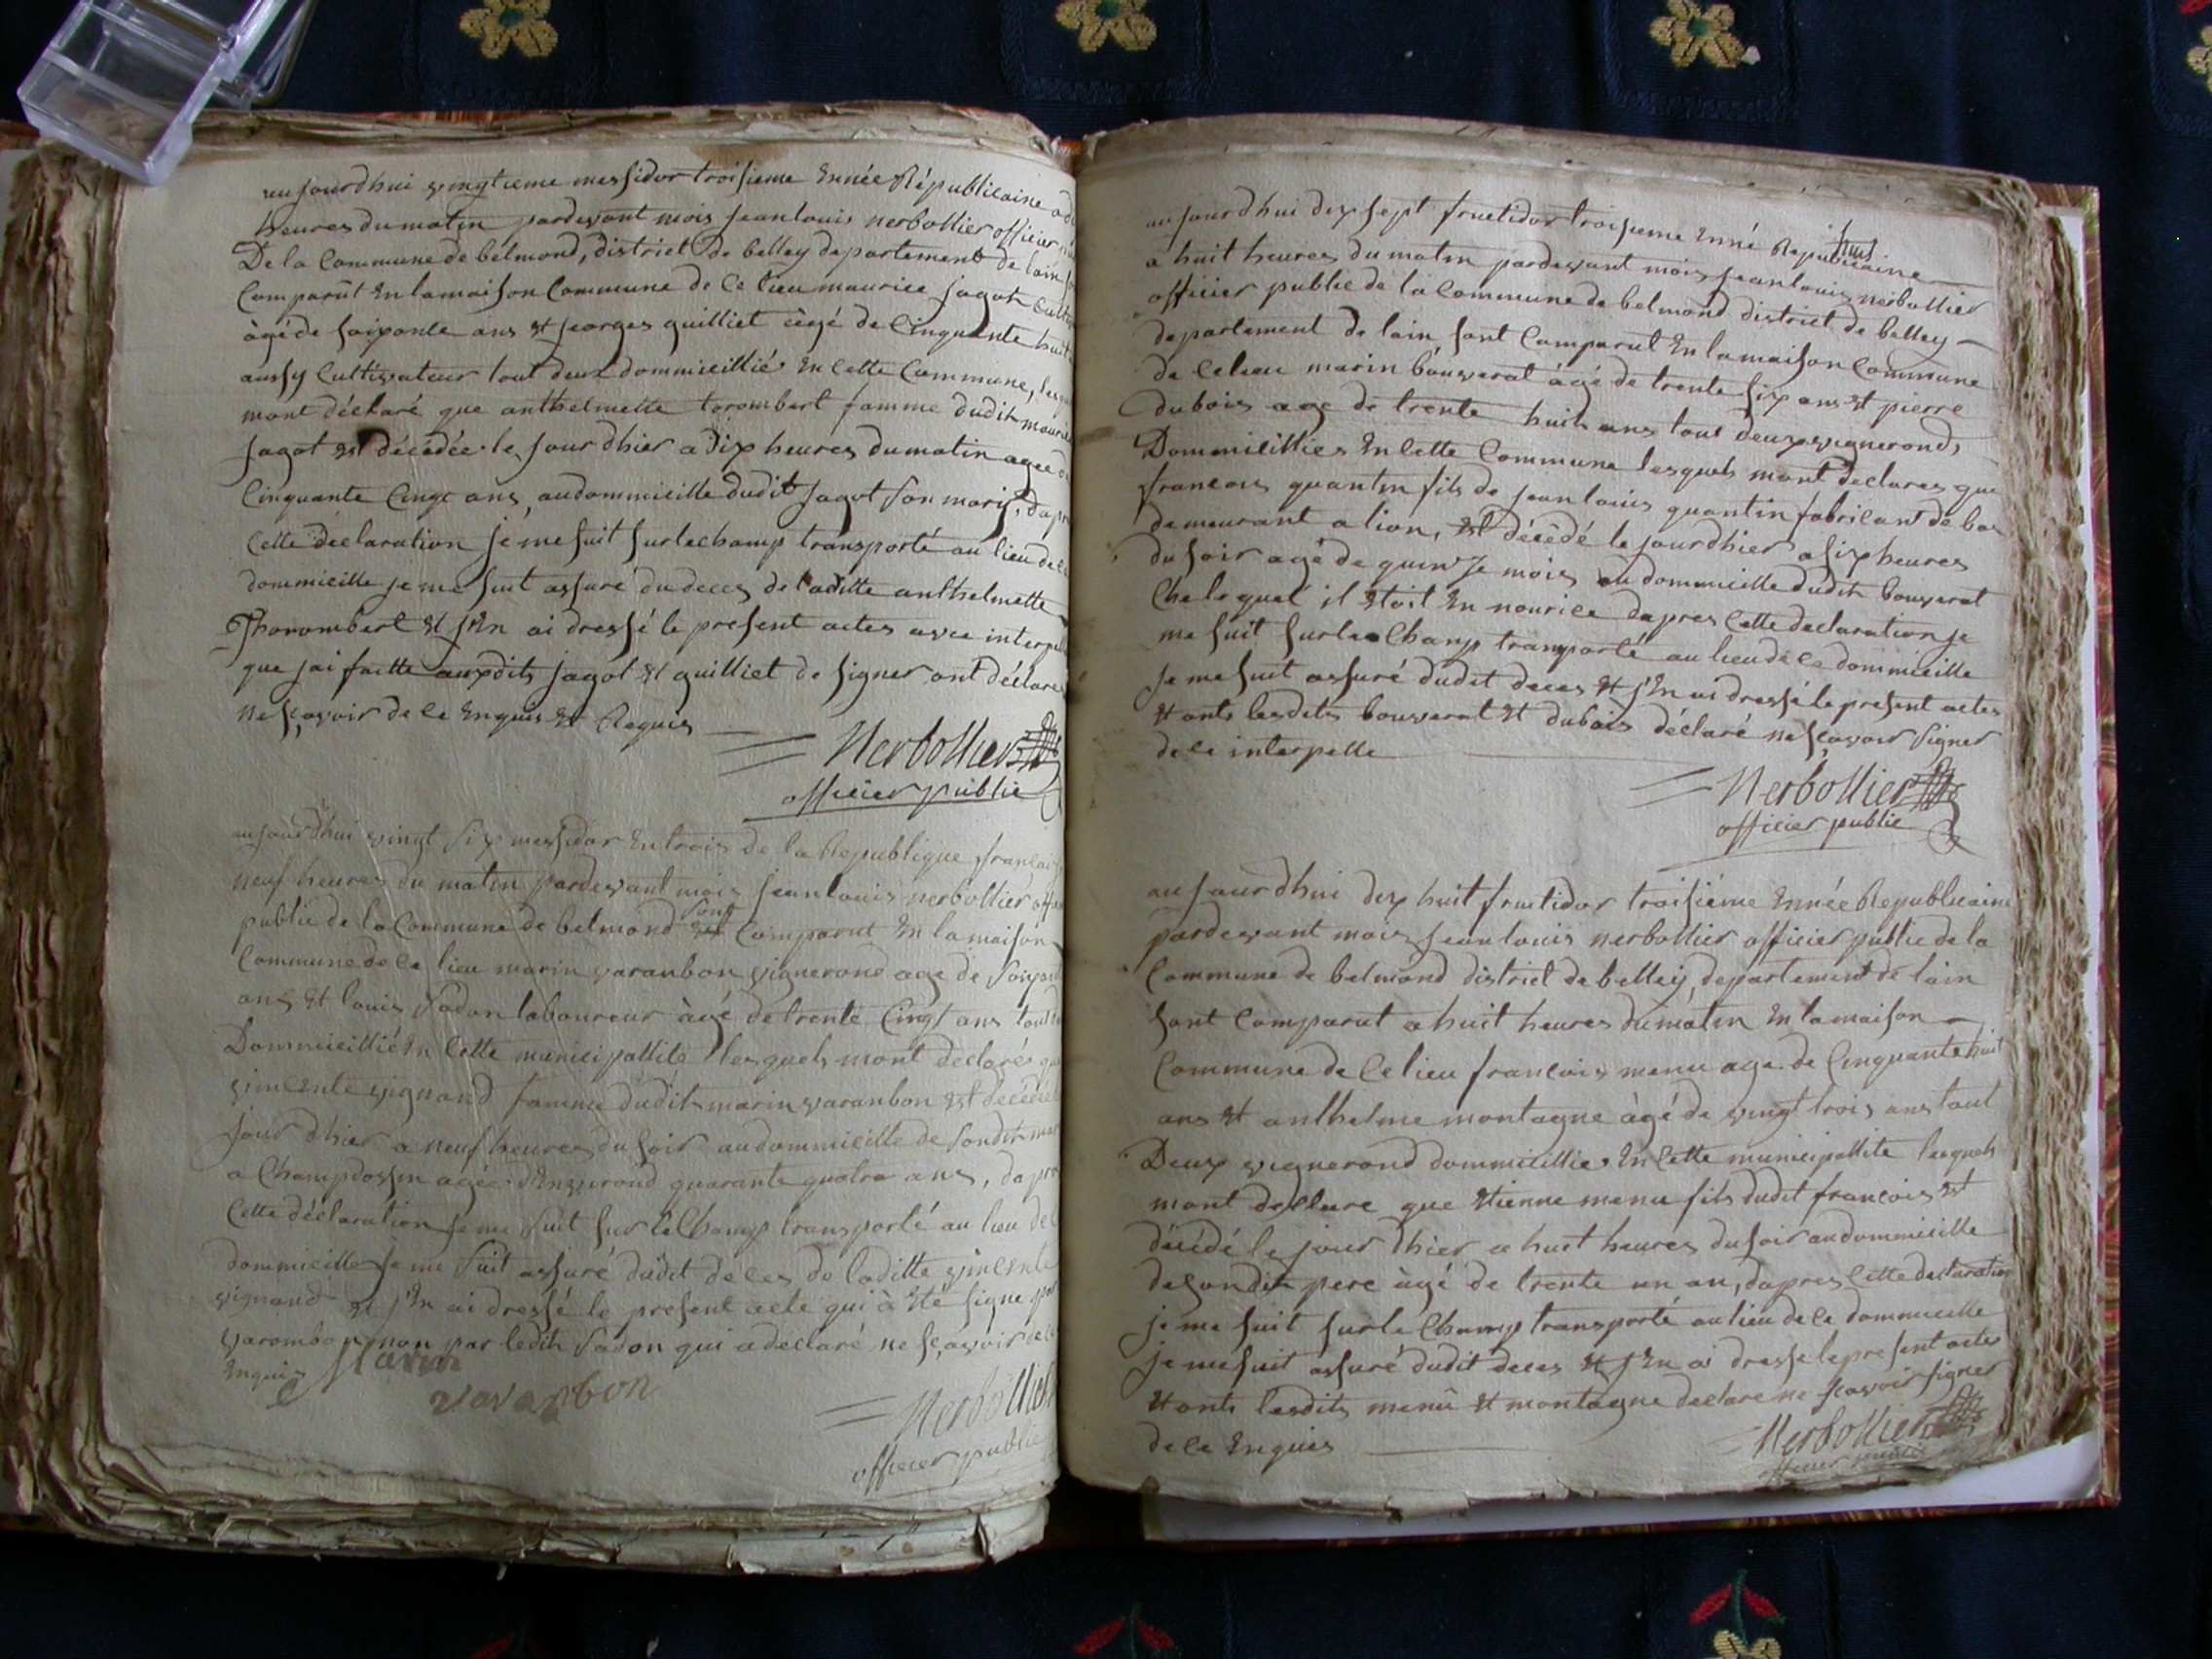 aujourdhui vingtieme messidor troisieme Ennée Républicaine a
heures du matin pardevant mois jean louis nerbollier officier
De la Commune de belmond, district De belley departement de lain
Comparût En la maison Commune de Ce lieu maurice jagot
àgé de soixante ans Et jeorges guilliet àgé de Cinquante huit
aussy Cultivateur tout deux dommicillié En Cette Commune,
mont déclaré que anthelmette torombert famme dudit
jagot Est décédée le jour dhier a Dix heures du matin agée
Cinquante Cinqt ans, au dommicille dudit jagot son maris,
Cette déclaration je me suit surlechamp transporté au lieu de
dommicille je me suit assuré du deces de laditte anthelmette
Thorombert Et jEn ai dressé le present actes avec
que jai faitte auxdits jagot Et guilliet de signer ont déclare
ne sçavoir de Ce Enquis Et Requis
Nerbollier
officier publie
aujourdhui vingt six messidor En trois de la Republique
neuf heures du matin pardevant mois jean louis nerbollier
publie de la Commune de belmond sont Comparut En la maison
Commune de Ce lieu marin varanbon vignerond age de
ans Et louis sadon laboureur àgé de trente Cingt ans
Dommicillié En Cette municipallité lesquels mont declarés
vincente vignand famme dudit marin varanbon Est
jour dhier a neuf heures du soir au dommicille de sondit
a Champdossin agée dEnvirond quarante quatre ans,
Cette déclaration je me suit sur le Champ transporté au lieu
dommicille je me suit assuré dudit deces de laditte vincente
vignand Et jEn ai dressé le present acte qui à Eté signe
varombon non par ledit sadon qui a declaré ne sçavoir
Enquis
Marin
varanbon
Nerbollier
officier publie
aujourdhui dix sept fructidor troisieme Enné Republicaine
a huit heures du matin pardevant mois jean louis nerbollier
officier publie de la Commune de belmond district de belley
departement de lain, sont Comparut En la maison Commune
de Celieu marin bouverat àgé de trente six ans Et pierre
dubois age de trente huit ans tout deux vignerond,
Dommicilliés En Cette Commune lesquels mont declares que
francois quantin fils de jean louis quantin fabricant de bas
demeurant a lion, Est décédé le jour dhier a six heures
du soir agé de quinze mois au dommicille dudit bouverat
Che lequel il Etoit En nourice dapres Cette declaration je
me suit surle Champ transporté au lieu de Ce dommicille
je me suit assuré dudit deces Et jEn ai dressé le present actes
Et onts lesdits bouverat Et dubois déclaré ne sçavoir signer
de Ce interpelle
Nerbollier
officier publie
aujourdhui dix huit fructidor troisiéme Ennée Republicaine
pardevant mois jean louis nerbollier officier publie de la
Commune de belmond district de belley, departement de lain
sont Comparut a huit heures du matin En la maison
Commune de Celieu francois menu age de Cinquante huit
ans Et anthelme montagne àgé de vingt trois ans tout
Deux vignerond dommicilliés En Cette municipallite lesquels
mont declare que Etienne menu fils dudit francois Est
décédé le jour dhier a huit heures du soir au dommicille
de sondit pere àgé de trente un an, dapres Cette declaration
je me suit surle Champ transporté au lieu de Ce dommicille
je me suit assuré dudit deces Et jEn ai dresse le present actes
Et onts lesdits menu Et montagne declare ne sçavoir signer
de Ce Enquis
Nerbollier
officier publie